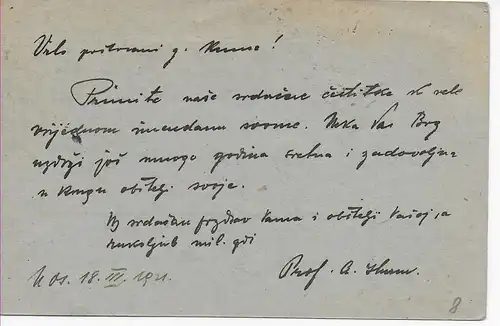 Vrlo poštovani g. Kume!
Primite naše srdačne čestitke k vele
vrijednom imendanu svome. Neka Vas Bog
uzdrži još mnogo godina sretna i zadovoljna
u krugu obitelji svoje.
Uz srdačan pozdrav Vama i obitelji Vašoj, a
rukoljub mil. gđi
U Os. 18. III. 1921. Prof. A.
8